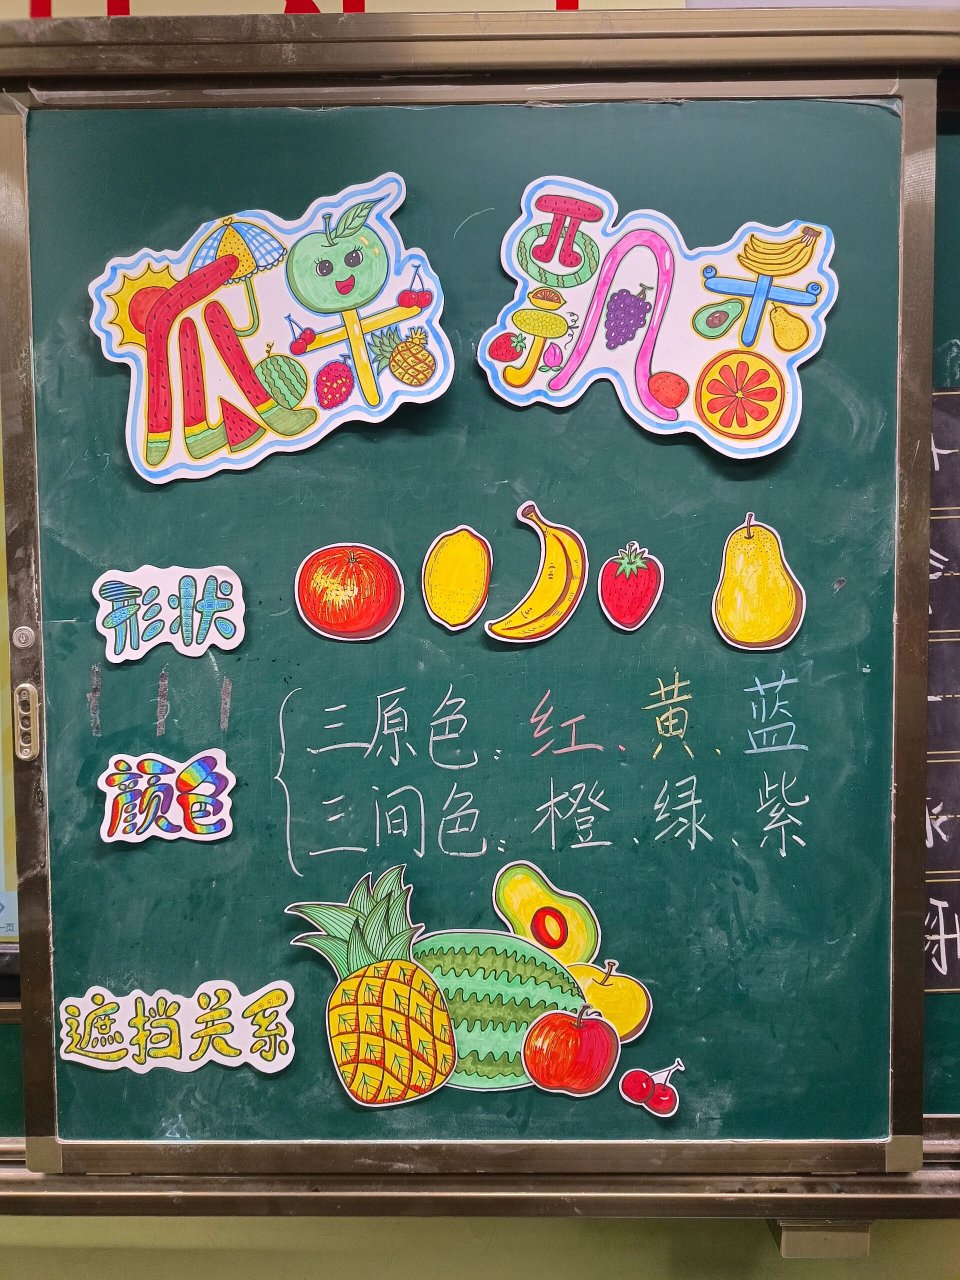 瓜果飘香
形状
颜色
三原色：红、黄、蓝
三间色：橙、绿、紫
遮挡关系